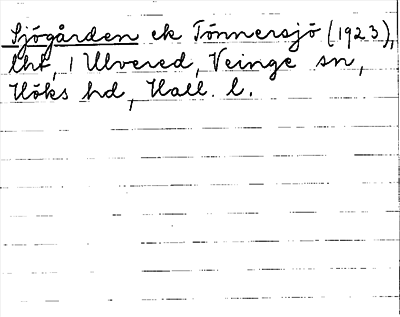 Sjögården ek Tönnersjö (1923),
lht, 1 Ulvered, Veinge sn,
Höks hd, Hall. l.